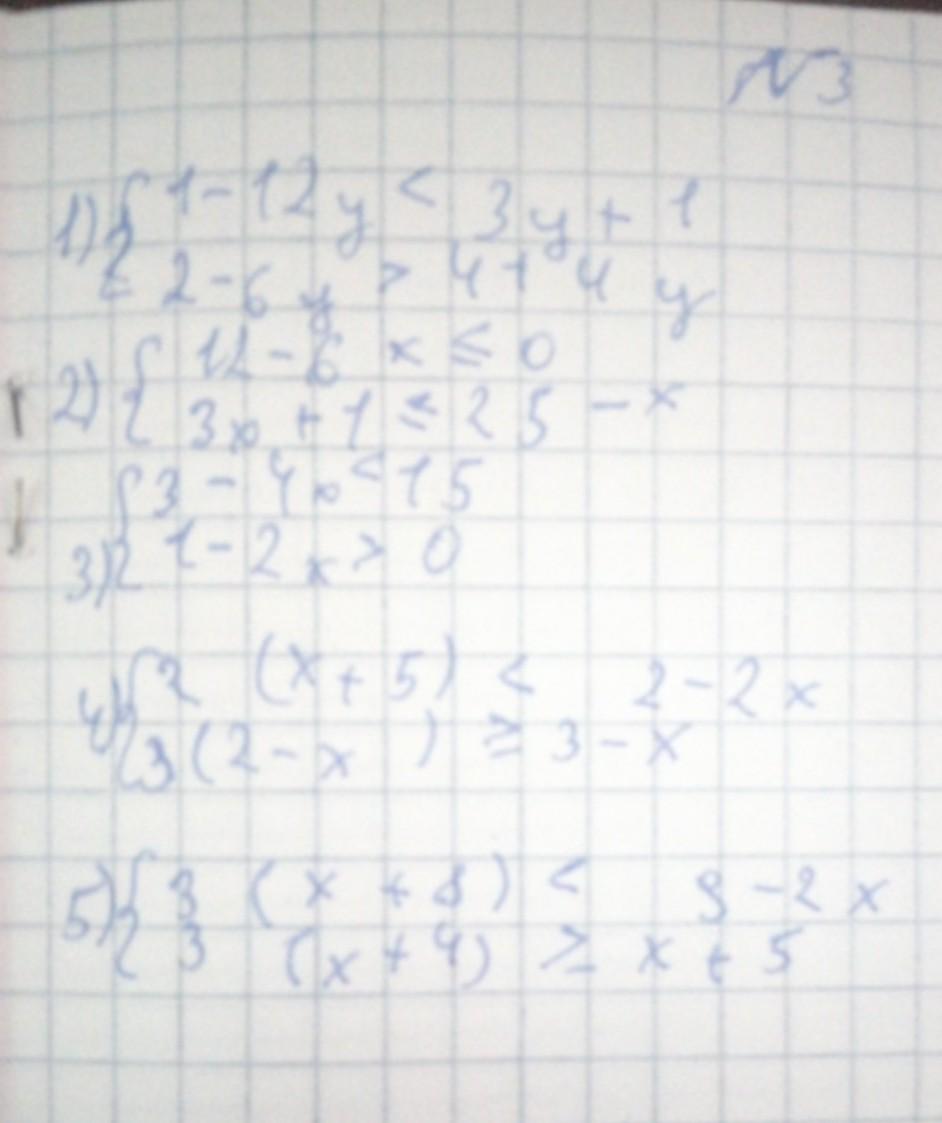 №3
1) { 1-12y < 3y + 1
2-6y > 4+4y
2) { 12-6x ≤ 0
3x+1 ≤ 25-x
3) { 3-4x<15
1-2x > 0
4) { 2 (x+5) < 2-2x
3(2-x) ≥ 3-x
5) { 3 (x+8) < 9-2x
3 (x+4) ≥ x+5